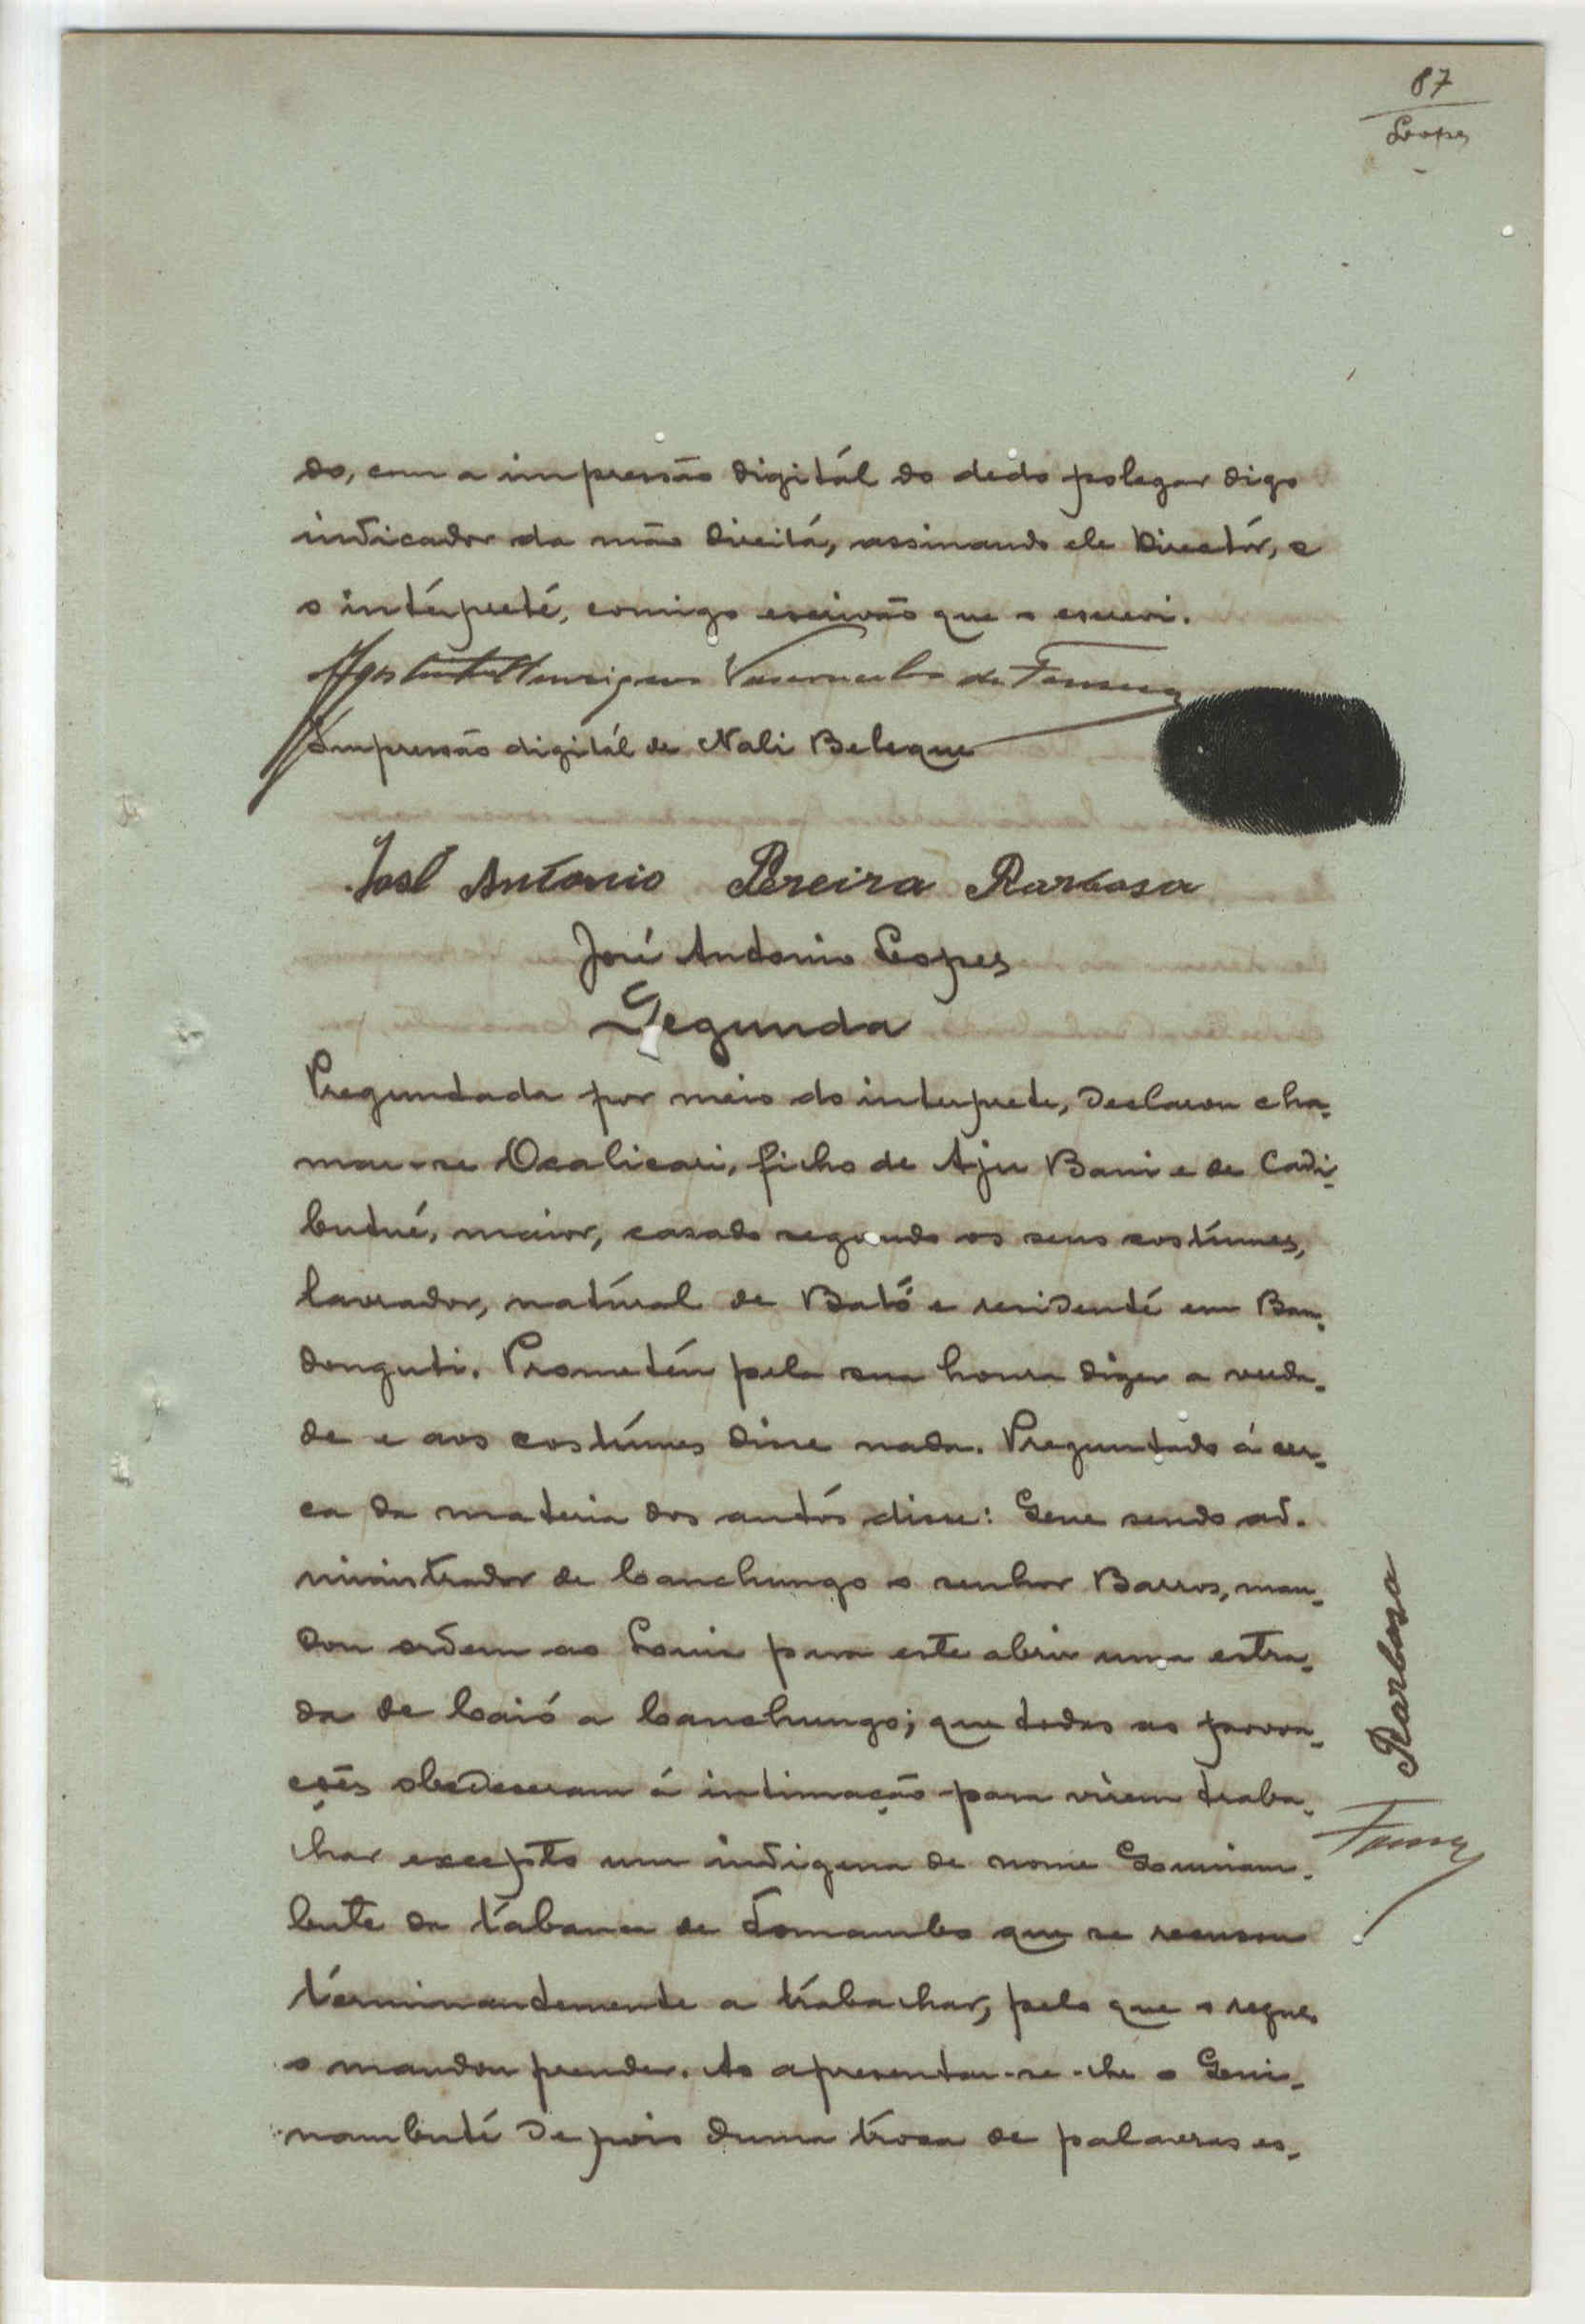 87
Lopes
do, com a impressão digitál do dedo polegar digo
indicador da mão direitá, assinando ele Directór, e
o intérpreté, comigo escrivão que o escrevi.
Henriques Vasconcelos da Fonseca
Impressão digitál de Nali Beleque
José Antonio Pereira Barbosa
José Antonio Lopes
Segunda
Preguntada por meio do interprete, declarou cha-
mar-se Ocalicari, ficho de Aju Bani e de Cadi-
butué, maior, casado segundo os seus costúmes,
lavrador, natúral de Bató e residenté em Ban-
donguti. Prometéu pela sua honra dizer a verda-
de e aos costúmes disse nada. Preguntado á cer-
ca da materia dos autós disse: Que sendo ad-
ministrador de Canchungo o senhor Barros, man-
dou ordem ao Louis para este abrir uma estra-
da de Caió a Canchungo; que todas as povoa-
ções obedeseram á intimação para virem traba-
char excepto um indigena de nome
bute da tábanca de que se recusou
términandemente a trábachar, pelo que o regulo
o mandou prender. Ao apresentar-se-che o Geni-
nambuté depois duma tróca de palavras es-
Barbosa
Fonseca